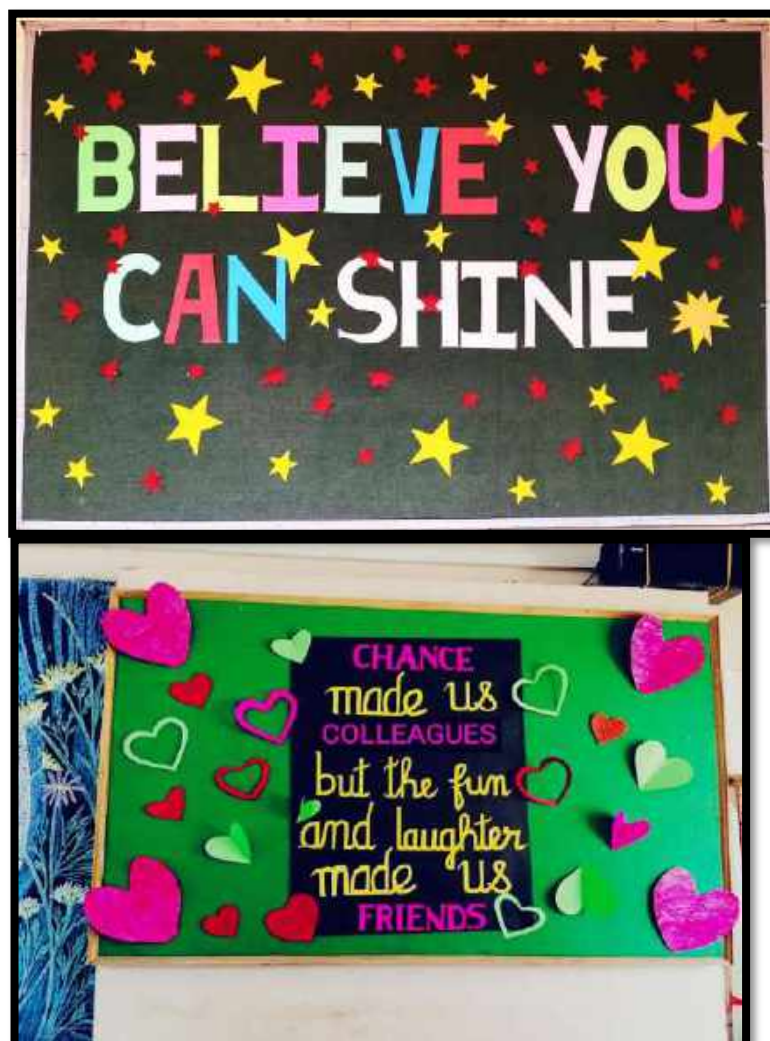 BELIEVE YOU
CAN SHINE
CHANCE
made us
COLLEAGUES
but the fun
and laughter
made us
FRIENDS